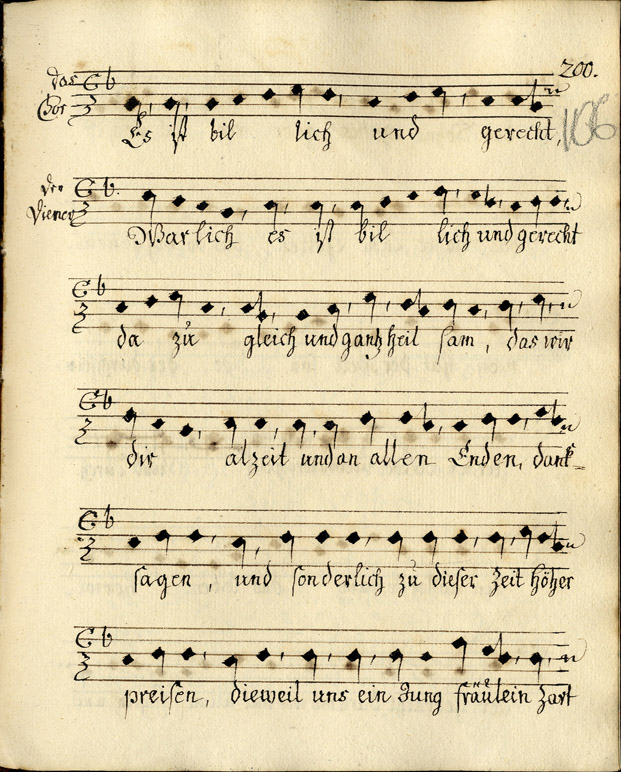 200.
das
Chor
Es ist bil lich und gerecht,
106
der
Diener
Warlich es ist bil lich und gerecht
da zu gleich und gantz heil sam, das wir
dir alzeit und an allen Enden, dank=
sagen, und sonderlich zu dieser Zeit höher
preisen, dieweil uns ein Jung fräulein zart